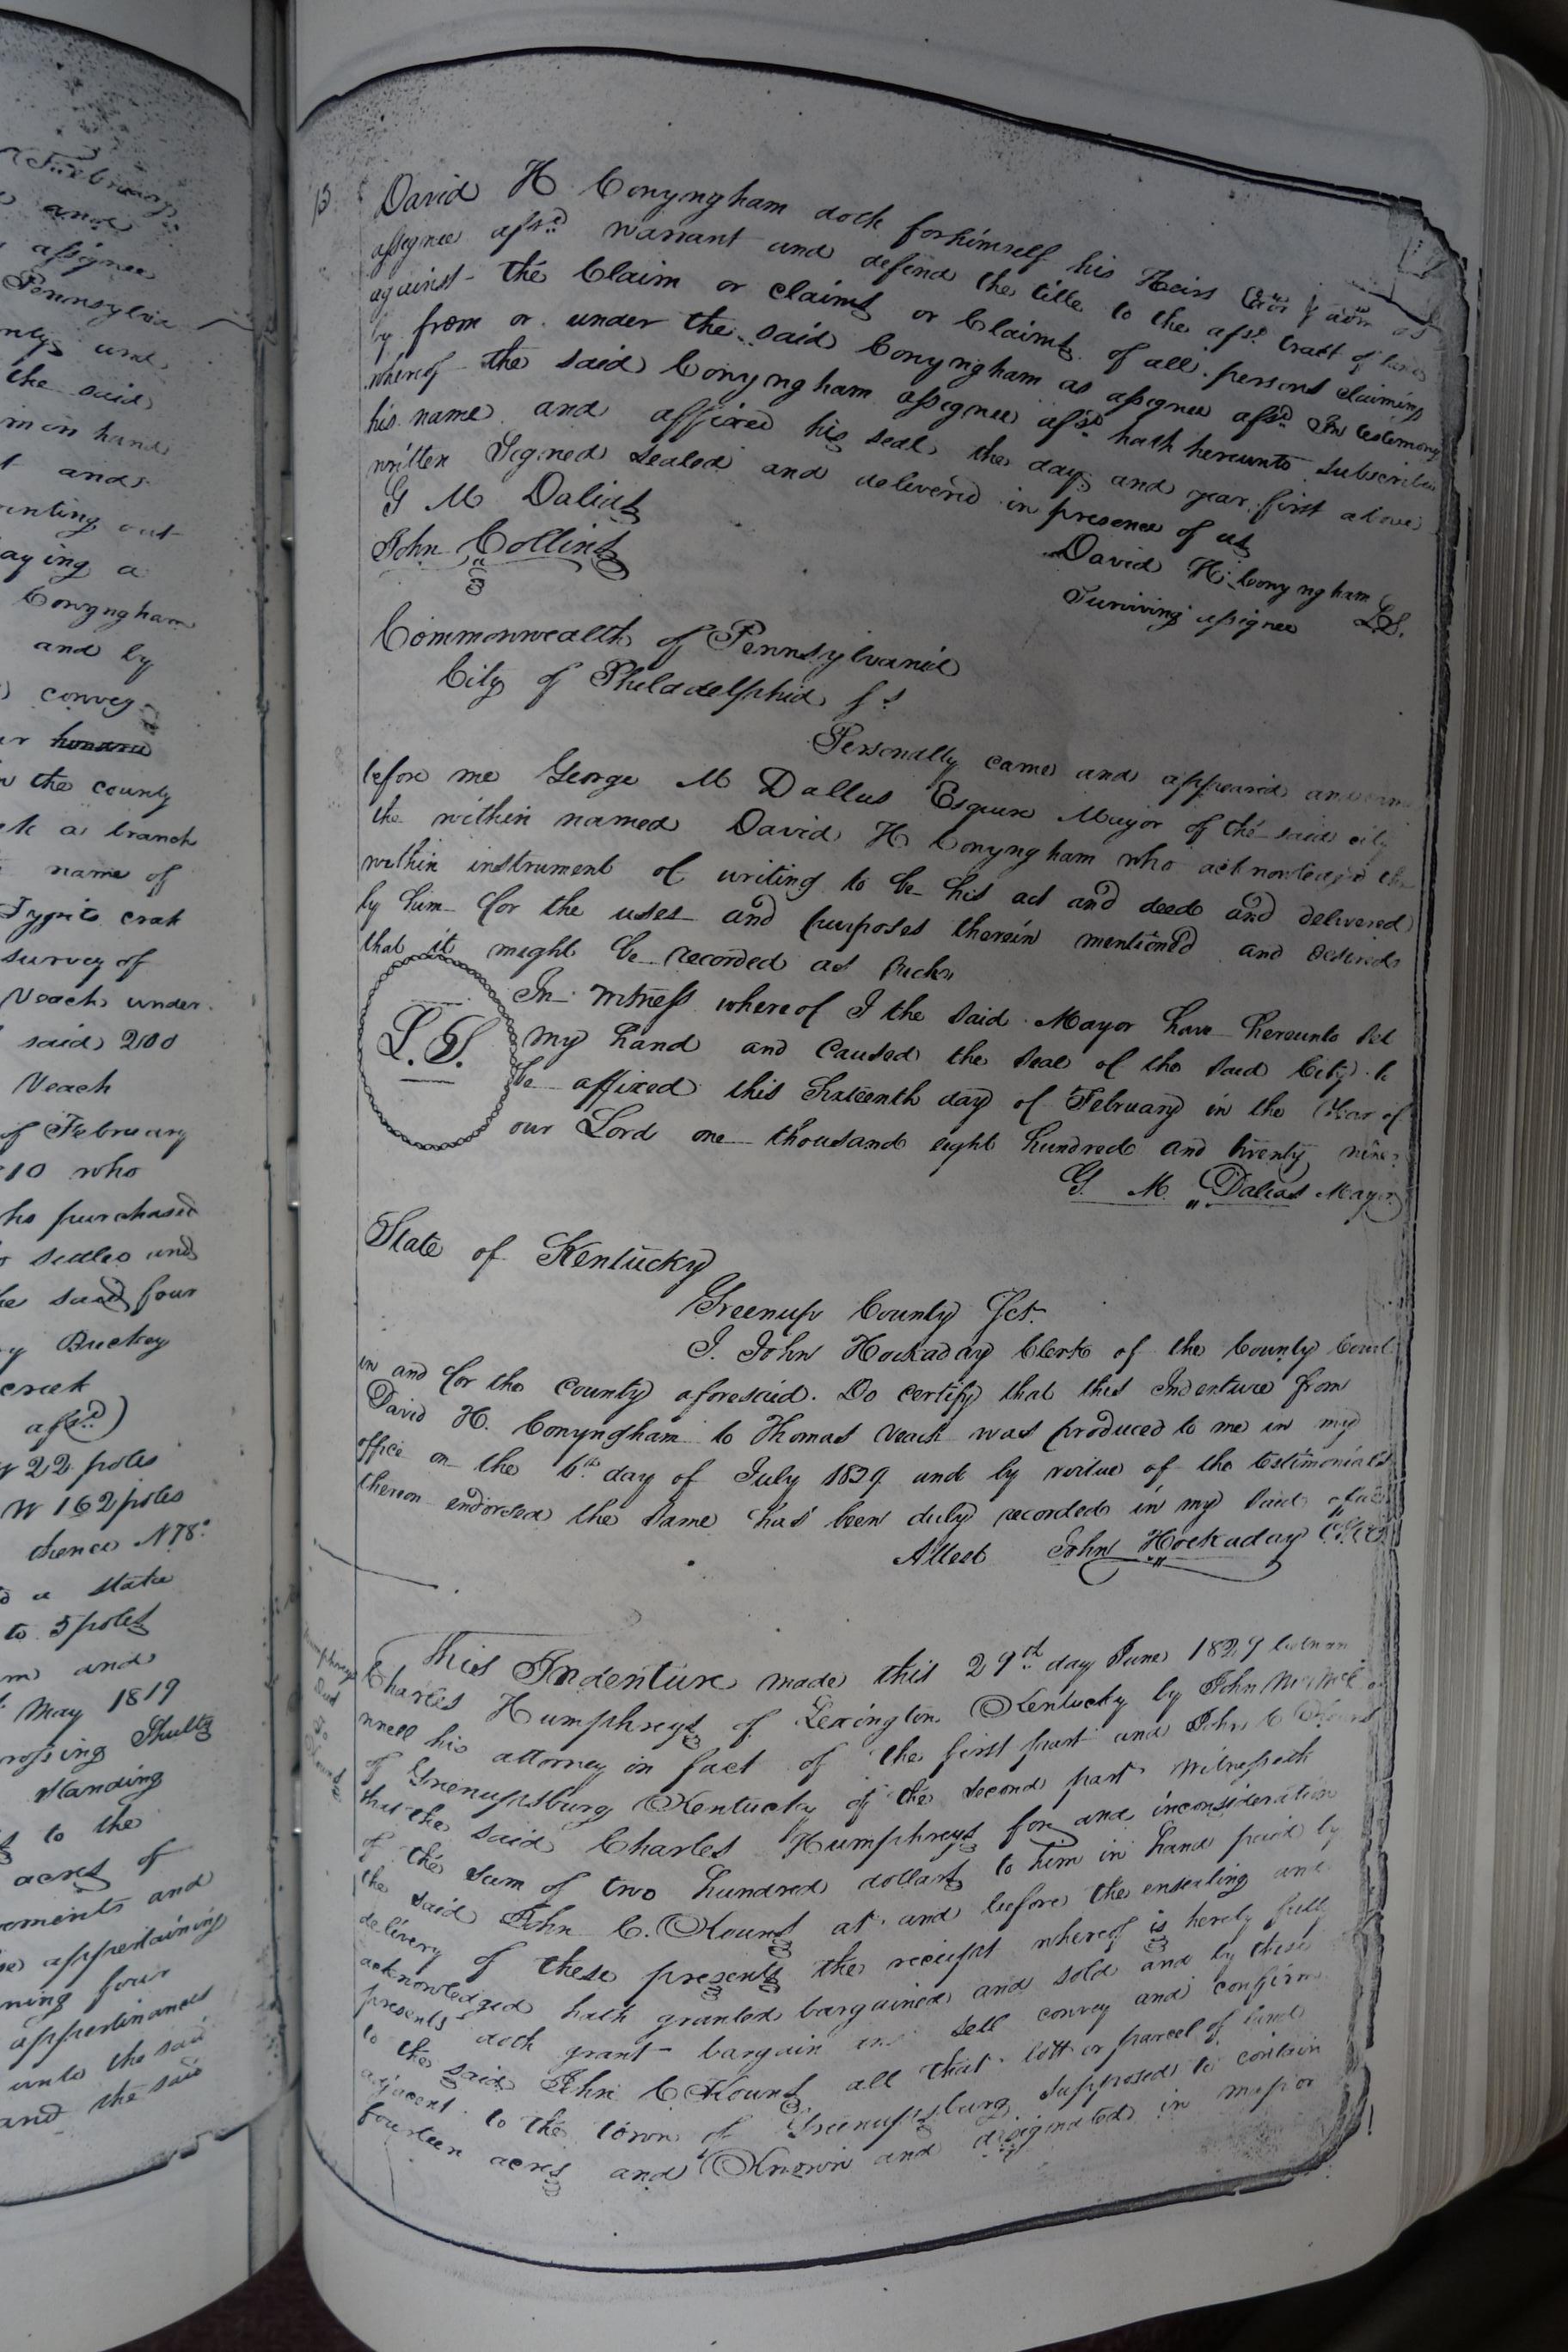 February
and
assignee
Pennsylvia
and
the said
in hand
and
out
a
Conyngham
and by
convey
hundred
the county
a branch
name of
Tygrits crek
survey of
Veach under
said 200
Veach
of February
10 who
purchased
and
said four
Buckey
creek
afsd)
22 poles
W 162 poles
thence N 78°
a state
to 5 poles
and
May 1819
Shultz
standing
to the
acres of
and
appertaining
four
appertinances
unto the said
and the said
13
David H Conyngham doth for himself his Heirs Exrs & adm as
assignee afsd warrant and defend the title to the afsd tract of land
against the Claim or claims or Claims of all persons claiming
by from or under the said Conyngham as assignee afsd In testimony
whereof the said Conyngham assignee afsd hath hereunto subscribed
his name and affixed his seal the day and year first above
written Signed sealed and delivered in presence of us
G M Dallas
David H. Conyngham
John Collins
Surviving assignee L.S.
Commonwealth of Pennsylvania
City of Philadelphia ss
Personally came and appeared
before me George M Dallus Esquire Mayor of the said city
the within named David H Conyngham who acknowledged the
within instrument of writing to be his act and deed and delivered
by him for the uses and purposes therein mentioned and desired
that it might be recorded as such
In witness whereof I the said Mayor have hereunto set
L.S.
my hand and caused the seal of the said City to
be affixed this Sixteenth day of February in the Year of
our Lord one thousand eight hundred and twenty nine
G. M. Dallas Mayor
State of Kentucky
Greenup County Sct.
I. John Hockaday Clerk of the County Court
in and for the county aforesaid. Do certify that this Indenture from
David H. Conyngham to Thomas Veach was produced to me in my
office on the 6th day of July 1829 and by virtue of the testimonials
thereon endorsed the same has been duly recorded in my said office
Attest John Hockaday C.G.C.C.
This Indenture made this 29th day June 1829 between
Charles Humphreys of Lexington Kentucky by John
nnell his attorney in fact of the first part and John C Kouns
of Greenupsburg Kentucky of the second part Witnesseth
that the said Charles Humphreys for and inconsideration
of the sum of two hundred dollars to him in hand paid by
the said John C. Kouns at and before the ensealing and
delivery of these presents the receipt whereof is hereby fully
acknowledged hath granted bargained and sold and by these
presents doth grant bargain and sell convey and confirm
to the said John C Kouns all that lott or parcel of land
adjacent to the town of Greenupsburg supposed to contain
fourteen acres and Known and designated in map or